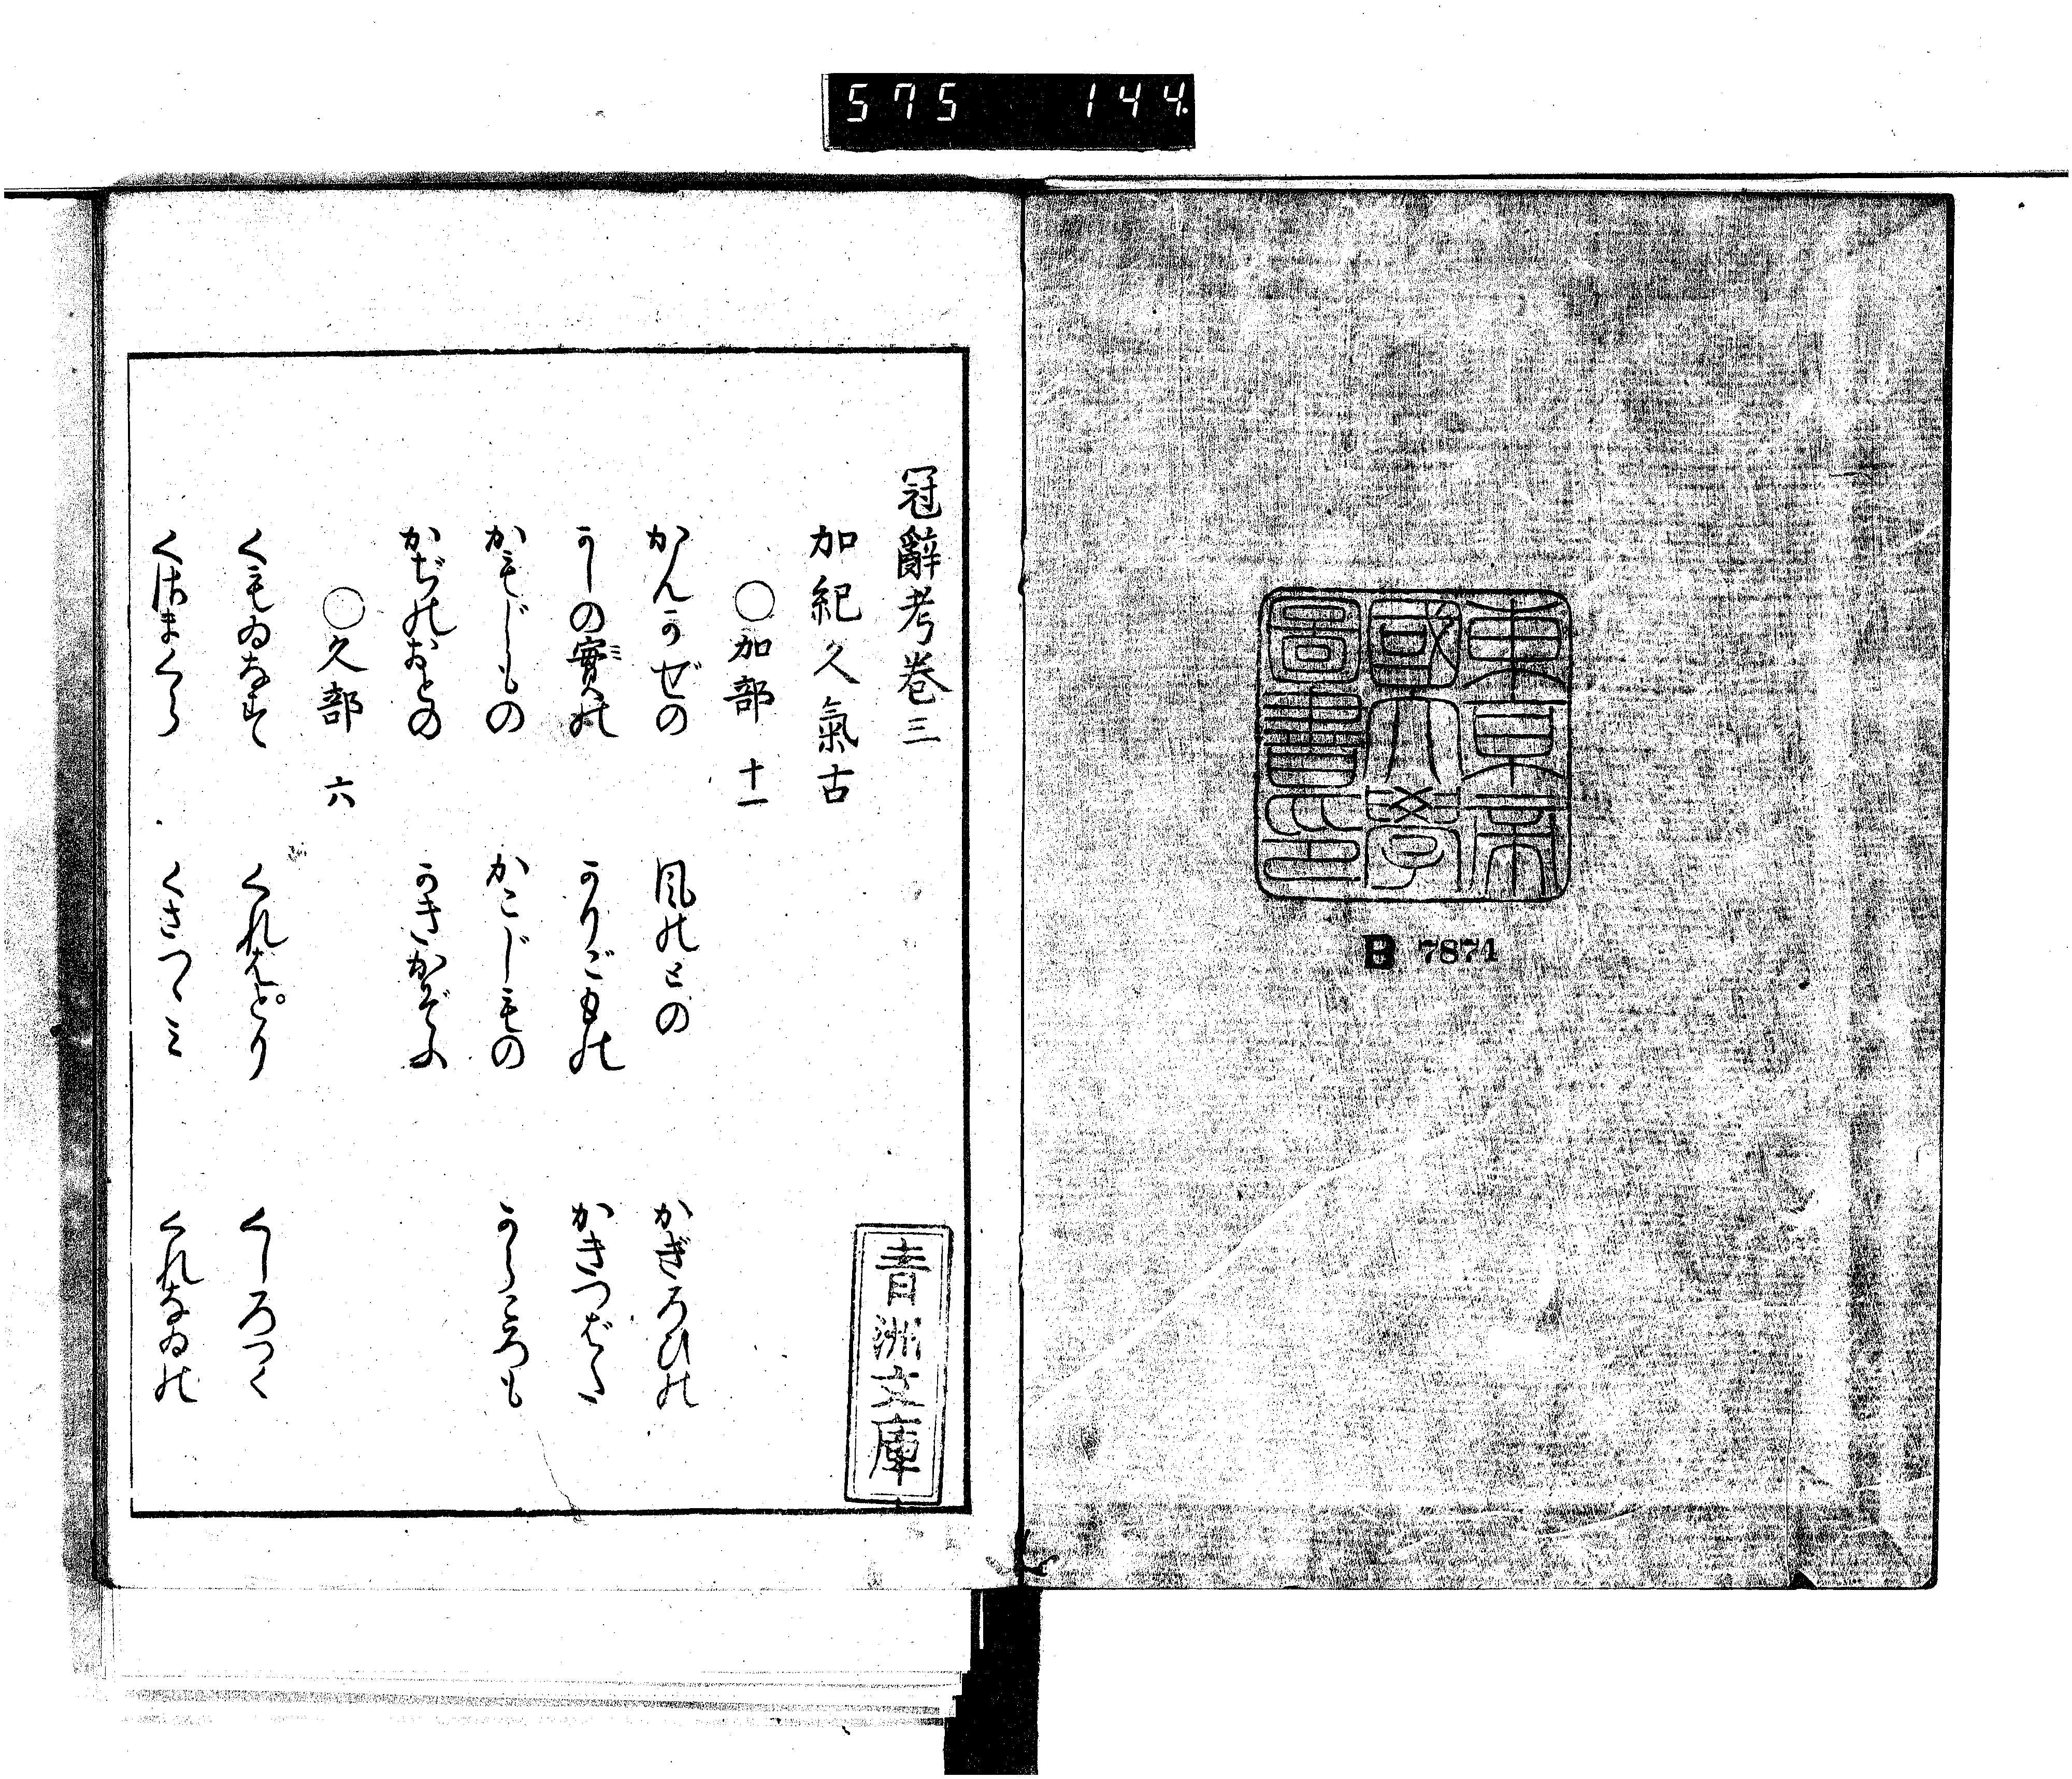 575 144
東京帝
國大學
圖書之印
B 7874
冠辭考卷三
加紀久氣古
○加部 十一
かんかぜの 風のとの かぎろひの
かしの實の ミ かりごもの かきつばた
かもじもの かこじもの からころも
かぢのおとの かきかぞふ
○久部 六
くもゐなす くれはとり くしろつく
くはまくら くさつゝみ くれなゐの
青洲文庫